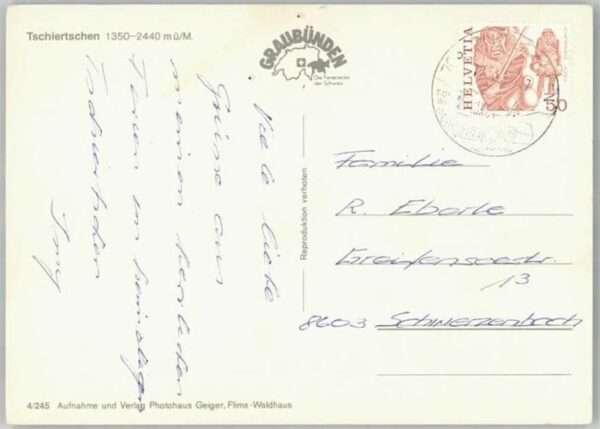 Tschiertschen 1350–2440 m ü/M.
GRAUBÜNDEN
Die Ferienecke
der Schweiz
HELVETIA
50
Viele liebe
Grüsse aus
meinen
Ferien im
Tschiertschen
Reproduktion verboten
Familie
R. Eberle
Greifenseestr.
13
8603 Schwerzenbach
4/245 Aufnahme und Verlag Photohaus Geiger, Flims-Waldhaus